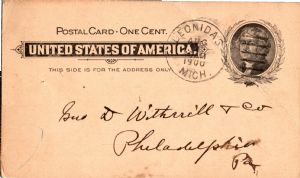 POSTAL CARD · ONE CENT.
UNITED STATES OF AMERICA.
THIS SIDE IS FOR THE ADDRESS ONLY
LEONIDAS
1900
MICH.
Geo D Witherill & Co
Philadelphia
Pa